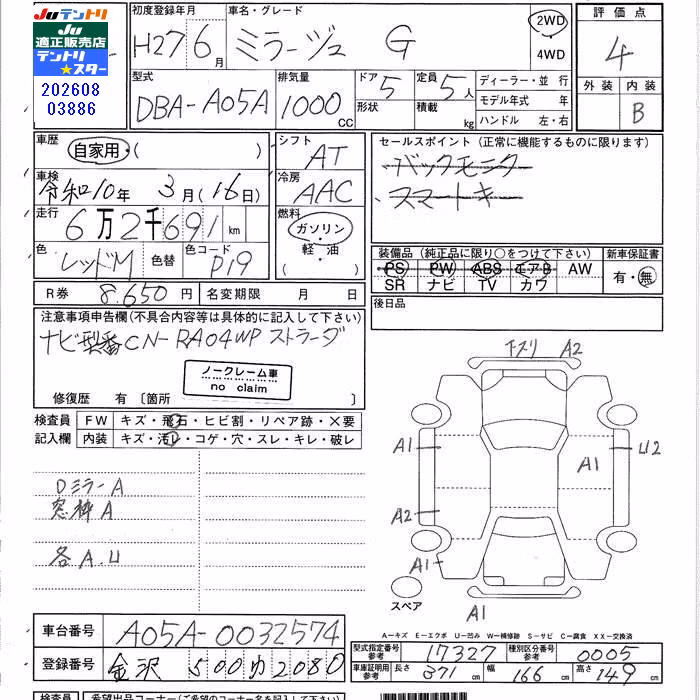 JUテントリ
JU
適正販売店
テントリ
★スター
202608
03886
初度登録年月 H27 6月
車名・グレード ミラージュ G
2WD
4WD
評価点 4
外装 内装 B
型式 DBA-A05A
排気量 1000 CC
ドア 5 形状
定員 5人 積載 kg
ディーラー・並行
モデル年式 年
ハンドル 左・右
車歴 自家用・( )
シフト AT
車検 令和10年 3月(16日)
冷房 AAC
走行 6万2千691 km
燃料 ガソリン
軽・油
( )
色 レッドM 色替 色コード P19
R券 8.650円 名変期限 月 日
セールスポイント (正常に機能するものに限ります)
・バックモニター
・スマートキー
装備品 (純正品に限り○をつけて下さい) 新車保証書
PS PW ABS エアB AW
SR ナビ TV カワ
有・無
後日品
注意事項申告欄(不具合内容等は具体的に記入して下さい)
ナビ型番CN-RA04WP ストラーダ
ノークレーム車
no claim
修復歴 有 [箇所 ]
検査員 FW キズ・飛石・ヒビ割・リペア跡・×要
記入欄 内装 キズ・汚レ・コゲ・穴・スレ・キレ・破レ
DミラーA
窓枠A
各A.U
下スリ A2
A1
A1
U2
A2
A1
A1
スペア
A－キズ E－エクボ U－凹み W－補修跡 S－サビ C－腐食 XX－交換済
車台番号 A05A-0032574
登録番号 金沢 500 ゆ 2080
型式指定番号 参考 17327 種別区分番号 参考 0005
車庫証明用 参考 長さ 371 cm 幅 166 cm 高さ 149 cm
検査員 希望出品コーナー(ご希望のコーナー名をご記入下さい)